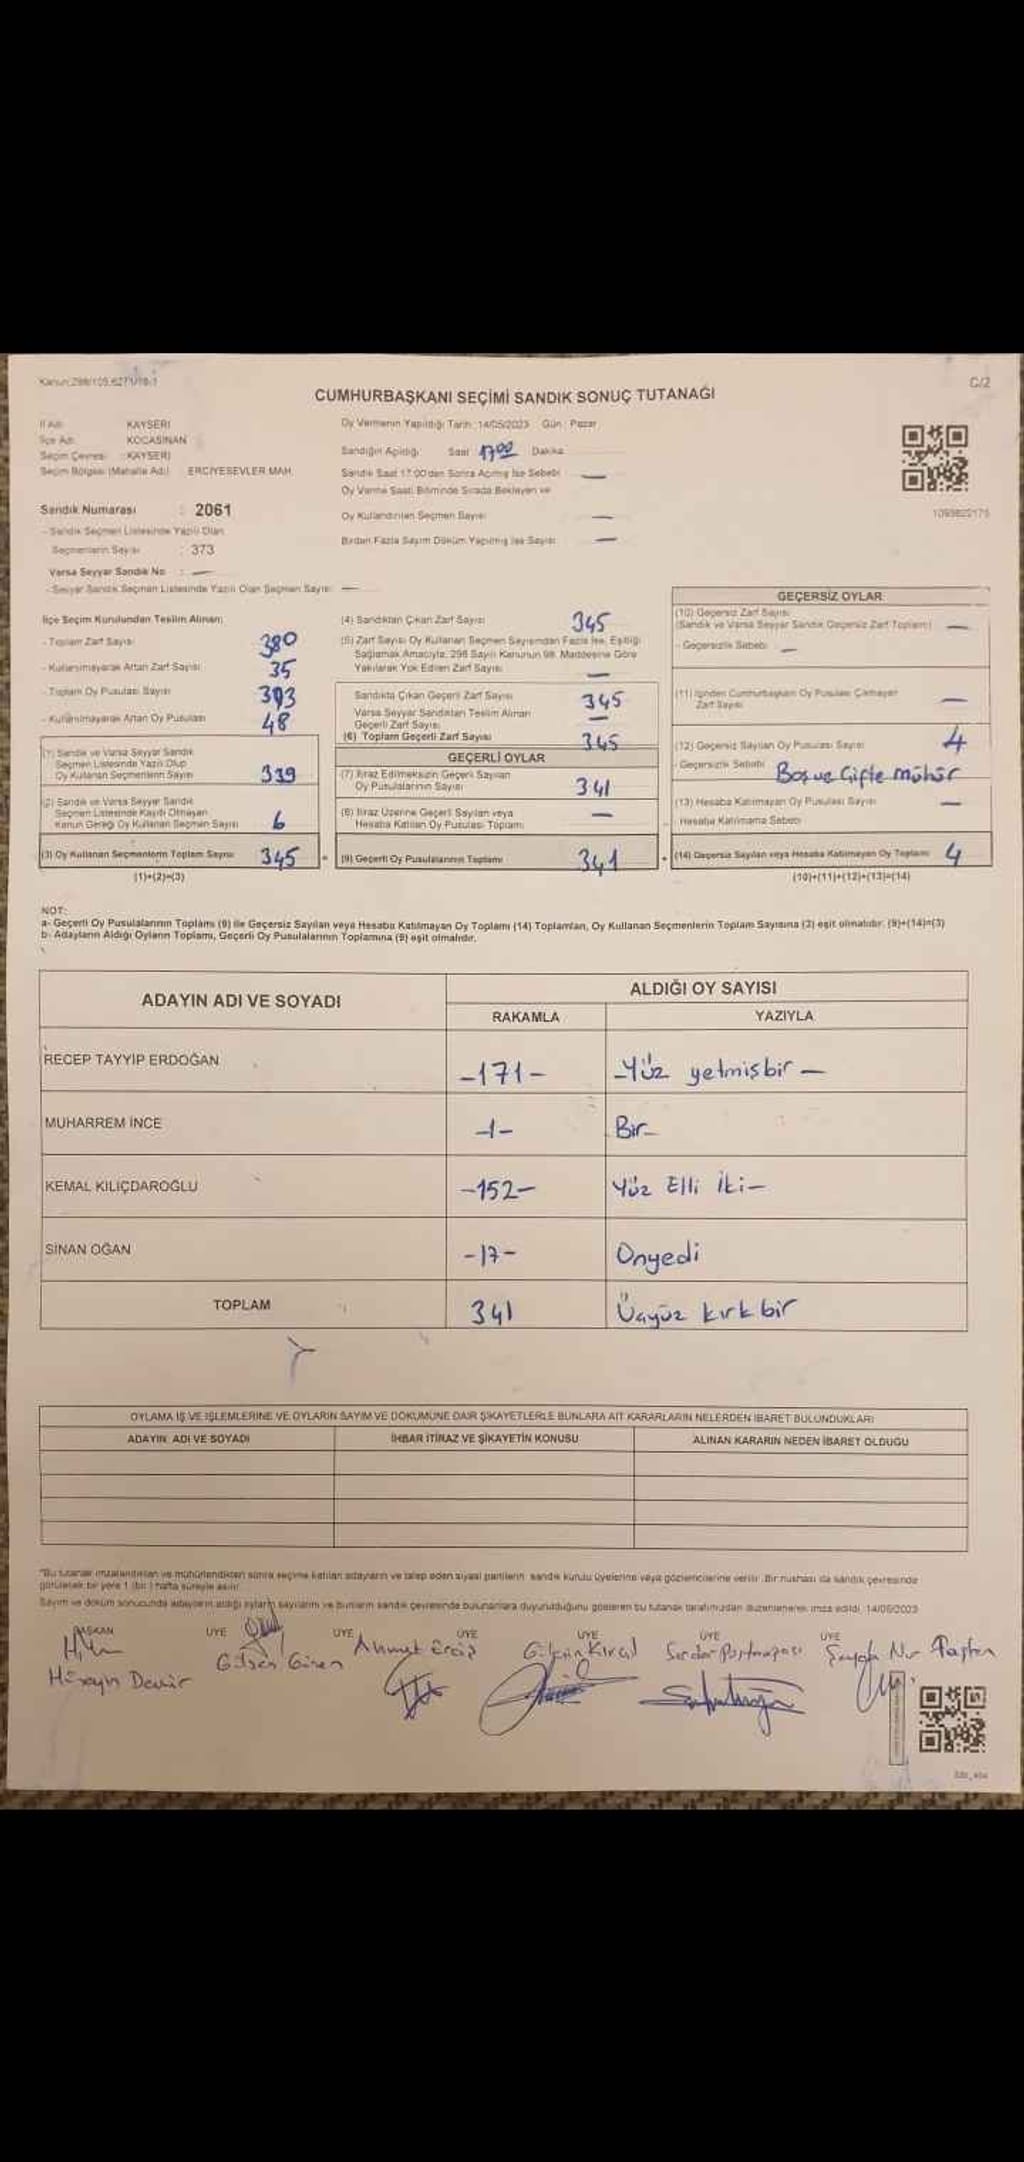 Kanun:298/105,6271/18-1
C/2
CUMHURBAŞKANI SEÇİMİ SANDIK SONUÇ TUTANAĞI
İl Adı : KAYSERİ
İlçe Adı : KOCASİNAN
Seçim Çevresi : KAYSERİ
Seçim Bölgesi (Mahalle Adı) : ERCİYESEVLER MAH.
Oy Vermenin Yapıldığı Tarih :14/05/2023 Gün : Pazar
Sandığın Açıldığı: Saat 17 00 Dakika
Sandık Saat 17:00'den Sonra Açılmış İse Sebebi : —
Oy Verme Saati Bitiminde Sırada Bekleyen ve
Oy Kullandırılan Seçmen Sayısı —
Birden Fazla Sayım Döküm Yapılmış İse Sayısı —
1093822175
Sandık Numarası : 2061
- Sandık Seçmen Listesinde Yazılı Olan
Seçmenlerin Sayısı : 373
Varsa Seyyar Sandık No : —
- Seyyar Sandık Seçmen Listesinde Yazılı Olan Seçmen Sayısı : —
İlçe Seçim Kurulundan Teslim Alınan;
- Toplam Zarf Sayısı 380
- Kullanılmayarak Artan Zarf Sayısı 35
- Toplam Oy Pusulası Sayısı 393
- Kullanılmayarak Artan Oy Pusulası 48
(1) Sandık ve Varsa Seyyar Sandık
Seçmen Listesinde Yazılı Olup
Oy Kullanan Seçmenlerin Sayısı 339
(2) Sandık ve Varsa Seyyar Sandık
Seçmen Listesinde Kayıtlı Olmayan
Kanun Gereği Oy Kullanan Seçmen Sayısı 6
(3) Oy Kullanan Seçmenlerin Toplam Sayısı 345 =
(1)+(2)=(3)
(4) Sandıktan Çıkan Zarf Sayısı 345
(5) Zarf Sayısı Oy Kullanan Seçmen Sayısından Fazla İse, Eşitliği
Sağlamak Amacıyla, 298 Sayılı Kanunun 98. Maddesine Göre
Yakılarak Yok Edilen Zarf Sayısı —
Sandıkta Çıkan Geçerli Zarf Sayısı 345
Varsa Seyyar Sandıktan Teslim Alınan
Geçerli Zarf Sayısı —
(6) Toplam Geçerli Zarf Sayısı 345
GEÇERLİ OYLAR
(7) İtiraz Edilmeksizin Geçerli Sayılan
Oy Pusulalarının Sayısı 341
(8) İtiraz Üzerine Geçerli Sayılan veya
Hesaba Katılan Oy Pusulası Toplamı —
(9) Geçerli Oy Pusulalarının Toplamı 341 +
GEÇERSİZ OYLAR
(10) Geçersiz Zarf Sayısı
(Sandık ve Varsa Seyyar Sandık Geçersiz Zarf Toplamı) —
- Geçersizlik Sebebi —
(11) İçinden Cumhurbaşkanı Oy Pusulası Çıkmayan
Zarf Sayısı —
(12) Geçersiz Sayılan Oy Pusulası Sayısı 4
- Geçersizlik Sebebi Boş ve Çifte mühür
(13) Hesaba Katılmayan Oy Pusulası Sayısı —
- Hesaba Katılmama Sebebi
(14) Geçersiz Sayılan veya Hesaba Katılmayan Oy Toplamı 4
(10)+(11)+(12)+(13)=(14)
NOT:
a- Geçerli Oy Pusulalarının Toplamı (9) ile Geçersiz Sayılan veya Hesaba Katılmayan Oy Toplamı (14) Toplamları, Oy Kullanan Seçmenlerin Toplam Sayısına (3) eşit olmalıdır. (9)+(14)=(3)
b- Adayların Aldığı Oyların Toplamı, Geçerli Oy Pusulalarının Toplamına (9) eşit olmalıdır.
ADAYIN ADI VE SOYADI
ALDIĞI OY SAYISI
RAKAMLA YAZIYLA
RECEP TAYYİP ERDOĞAN -171- -Yüz yetmişbir —
MUHARREM İNCE -1- Bir-
KEMAL KILIÇDAROĞLU -152- Yüz Elli İki-
SİNAN OĞAN -17- Onyedi
TOPLAM 341 Üçyüz kırkbir
OYLAMA İŞ VE İŞLEMLERİNE VE OYLARIN SAYIM VE DÖKÜMÜNE DAİR ŞİKAYETLERLE BUNLARA AİT KARARLARIN NELERDEN İBARET BULUNDUKLARI
ADAYIN ADI VE SOYADI İHBAR İTİRAZ VE ŞİKAYETİN KONUSU ALINAN KARARIN NEDEN İBARET OLDUĞU
*Bu tutanak imzalandıktan ve mühürlendikten sonra seçime katılan adayların ve talep eden siyasi partilerin sandık kurulu üyelerine veya gözlemcilerine verilir. Bir nüshası da sandık çevresinde
görülecek bir yere 1 (bir) hafta süreyle asılır.
Sayım ve döküm sonucunda adayların aldığı oyların sayılarını ve bunların sandık çevresinde bulunanlara duyurulduğunu gösteren bu tutanak tarafımızdan düzenlenerek imza edildi. 14/05/2023
BAŞKAN ÜYE ÜYE ÜYE ÜYE ÜYE ÜYE
Hüseyin Demir Gülşen Güren Ahmet Gülçin Kırçıl Serdar Nur Taştan